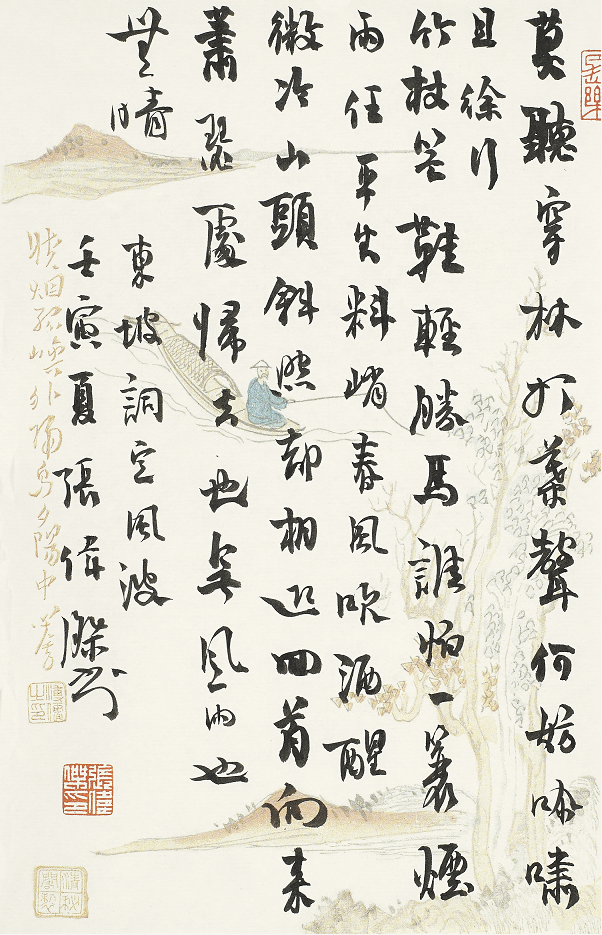 莫聽穿林打葉聲何妨吟嘯
且徐行
竹杖芒鞋輕勝馬誰怕一蓑煙
雨任平生料峭春風吹酒醒
微冷山頭斜照却相迎回首向來
蕭瑟處歸去也無風雨也
無晴
東坡詞定風波
壬寅夏張偉傑书
烟孤嶼外歸鳥夕陽中
溥儒之印
張偉傑印